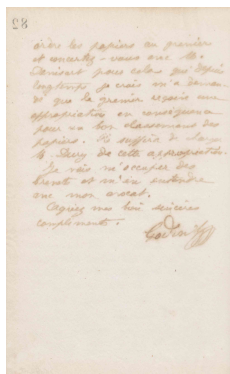 82
les papiers au grenier
et concertez-vous avec M.
pour cela, qui depuis
longtemps je crois m'a demandé
que le grenier reçoive une
appropriation en conséquence
pour un bon classement des
papiers. Il suffira de charger
M. de cette appropriation.
Je vais m'occuper des
brevets et m'en entendre
avec mon avocat.
Agréez mes bien sincères
compliments.
Godin